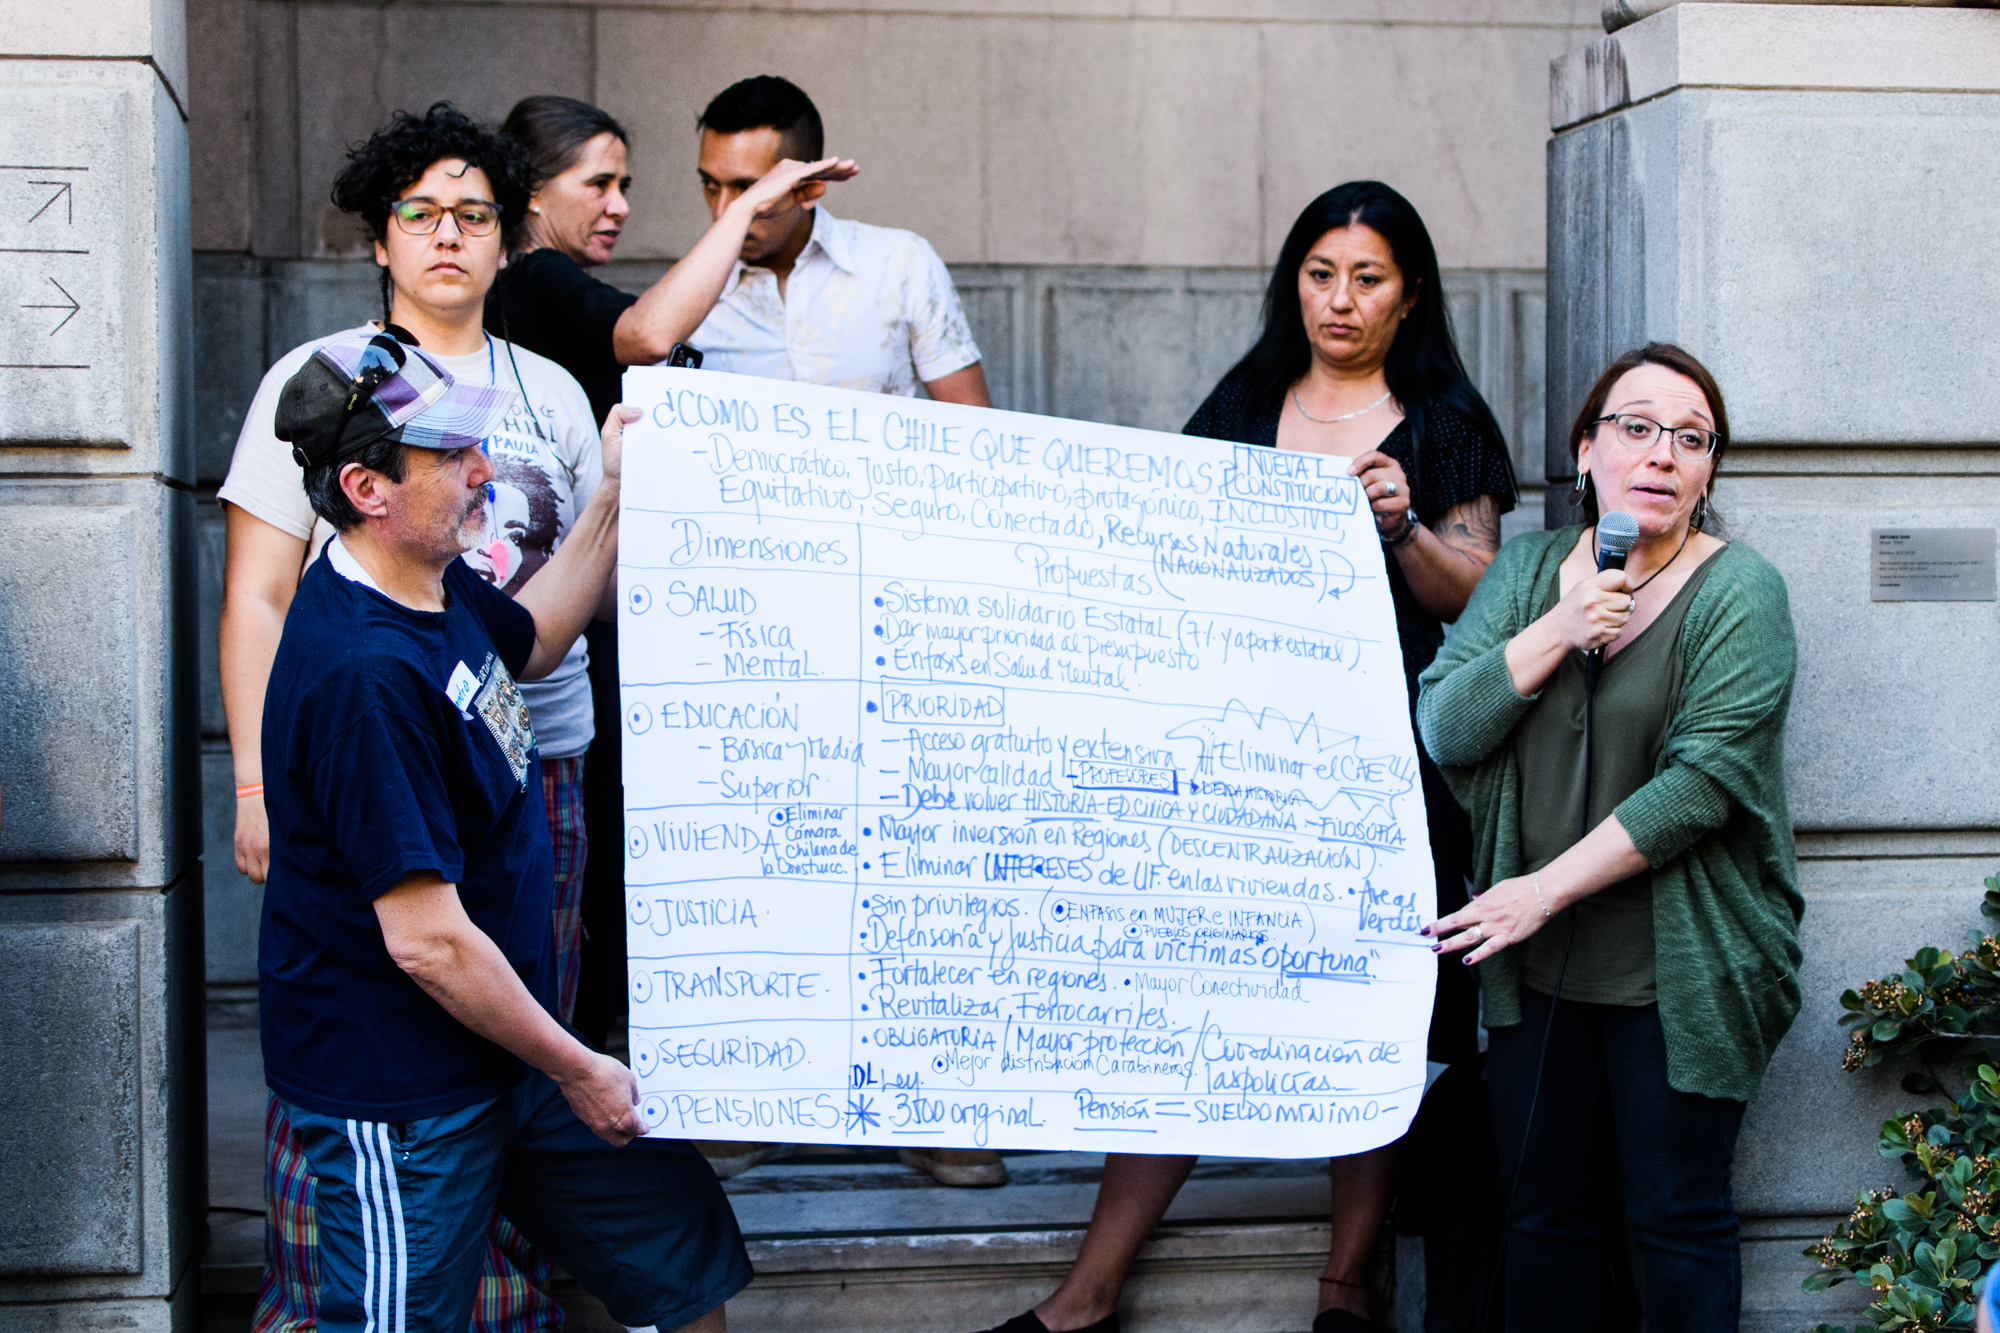 ¿COMO ES EL CHILE QUE QUEREMOS?
NUEVA
CONSTITUCIÓN
- Democrático, Justo, participativo, protagónico, INCLUSIVO,
Equitativo, Seguro, Conectado, Recursos Naturales
(NACIONALIZADOS)
Dimensiones
Propuestas.
SALUD
- Física
- Mental.
• Sistema solidario Estatal (7% y aporte estatal).
• Dar mayor prioridad al presupuesto
• Énfasis en Salud Mental.
EDUCACIÓN
- Básica y Media
- Superior.
• PRIORIDAD
- Acceso gratuito y extensiva
# Eliminar el CAE
- Mayor calidad - PROFESORES
DEUDA HISTORICA
- Debe volver HISTORIA - ED. CIVICA Y CIUDADANA. - FILOSOFÍA
VIVIENDA
Eliminar
Cámara
Chilena de
la Construcc.
• Mayor inversión en Regiones (DESCENTRALIZACIÓN).
• Eliminar INTERESES de UF. en las viviendas. • Areas
Verdes
JUSTICIA.
• Sin privilegios. (ENFASIS en MUJER e INFANCIA)
PUEBLOS ORIGINARIOS.
• Defensoría y justicia para víctimas oportuna".
TRANSPORTE.
• Fortalecer en regiones. • Mayor Conectividad
• Revitalizar, Ferrocarriles.
SEGURIDAD.
• OBLIGATORIA / Mayor protección / Coordinación de
las policías.
Mejor distribución Carabineros.
PENSIONES.
DL Ley.
3500 original. Pensión = SUELDO MÍNIMO -
PAULA